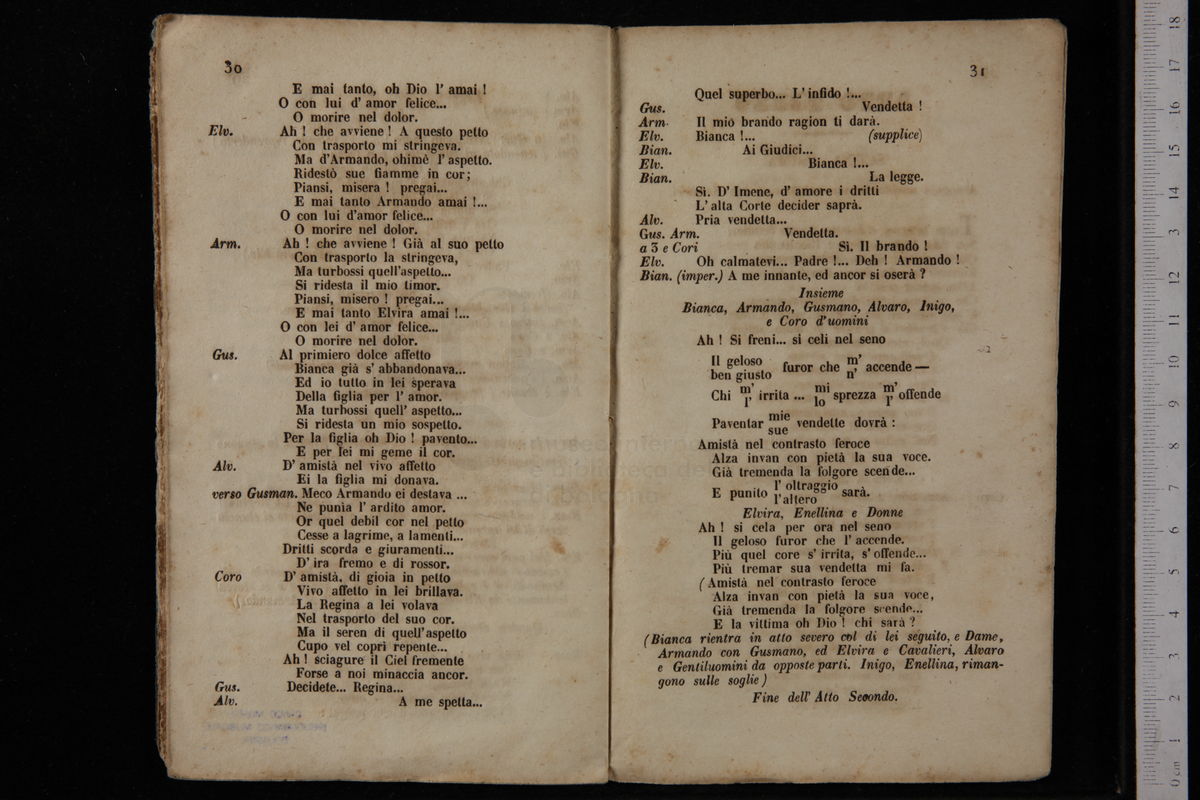 30
E mai tanto, oh Dio l' amai !
O con lui d' amor felice...
O morire nel dolor.
Elv. Ah ! che avviene ! A questo petto
Con trasporto mi stringeva.
Ma d'Armando, ohimè l' aspetto.
Ridestò sue fiamme in cor;
Piansi, misera ! pregai...
E mai tanto Armando amai !...
O con lui d'amor felice...
O morire nel dolor.
Arm. Ah ! che avviene ! Già al suo petto
Con trasporto la stringeva,
Ma turbossi quell'aspetto...
Si ridesta il mio timor.
Piansi, misero ! pregai...
E mai tanto Elvira amai !...
O con lei d' amor felice...
O morire nel dolor.
Gus. Al primiero dolce affetto
Bianca già s' abbandonava...
Ed io tutto in lei sperava
Della figlia per l' amor.
Ma turbossi quell' aspetto...
Si ridesta un mio sospetto.
Per la figlia oh Dio ! pavento...
E per lei mi geme il cor.
Alv. D' amistà nel vivo affetto
Ei la figlia mi donava.
verso Gusman. Meco Armando ei destava ...
Ne punia l' ardito amor.
Or quel debil cor nel petto
Cesse a lagrime, a lamenti...
Dritti scorda e giuramenti...
D' ira fremo e di rossor.
Coro D' amistà, di gioia in petto
Vivo affetto in lei brillava.
La Regina a lei volava
Nel trasporto del suo cor.
Ma il seren di quell'aspetto
Cupo vel coprì repente...
Ah ! sciagure il Ciel fremente
Forse a noi minaccia ancor.
Gus. Decidete... Regina...
Alv. A me spetta...
31
Quel superbo... L' infido !...
Gus. Vendetta !
Arm. Il mio brando ragion ti darà.
Elv. Bianca !... (supplice)
Bian. Ai Giudici...
Elv. Bianca !...
Bian. La legge.
Sì. D' Imene, d' amore i dritti
L' alta Corte decider saprà.
Alv. Pria vendetta...
Gus. Arm. Vendetta.
a 3 e Cori Sì. Il brando !
Elv. Oh calmatevi... Padre !... Deh ! Armando !
Bian. (imper.) A me innante, ed ancor si oserà ?
Insieme
Bianca, Armando, Gusmano, Alvaro, Inigo,
e Coro d' uomini
Ah ! Si freni... si celi nel seno
Il geloso furor che m' accende —
ben giusto n'
Chi m' irrita ... mi sprezza m' offende
l' lo l'
Paventar mie vendette dovrà :
sue
Amistà nel contrasto feroce
Alza invan con pietà la sua voce.
Già tremenda la folgore scende...
E punito l' oltraggio sarà.
l'altero
Elvira, Enellina e Donne
Ah ! si cela per ora nel seno
Il geloso furor che l' accende.
Più quel core s' irrita, s' offende...
Più tremar sua vendetta mi fa.
( Amistà nel contrasto feroce
Alza invan con pietà la sua voce,
Già tremenda la folgore scende...
E la vittima oh Dio ! chi sarà ?
(Bianca rientra in atto severo col di lei seguito, e Dame,
Armando con Gusmano, ed Elvira e Cavalieri, Alvaro
e Gentiluomini da opposte parti. Inigo, Enellina, riman-
gono sulle soglie )
Fine dell' Atto Secondo.
0 cm 1 2 3 4 5 6 7 8 9 10 11 12 13 14 15 16 17 18